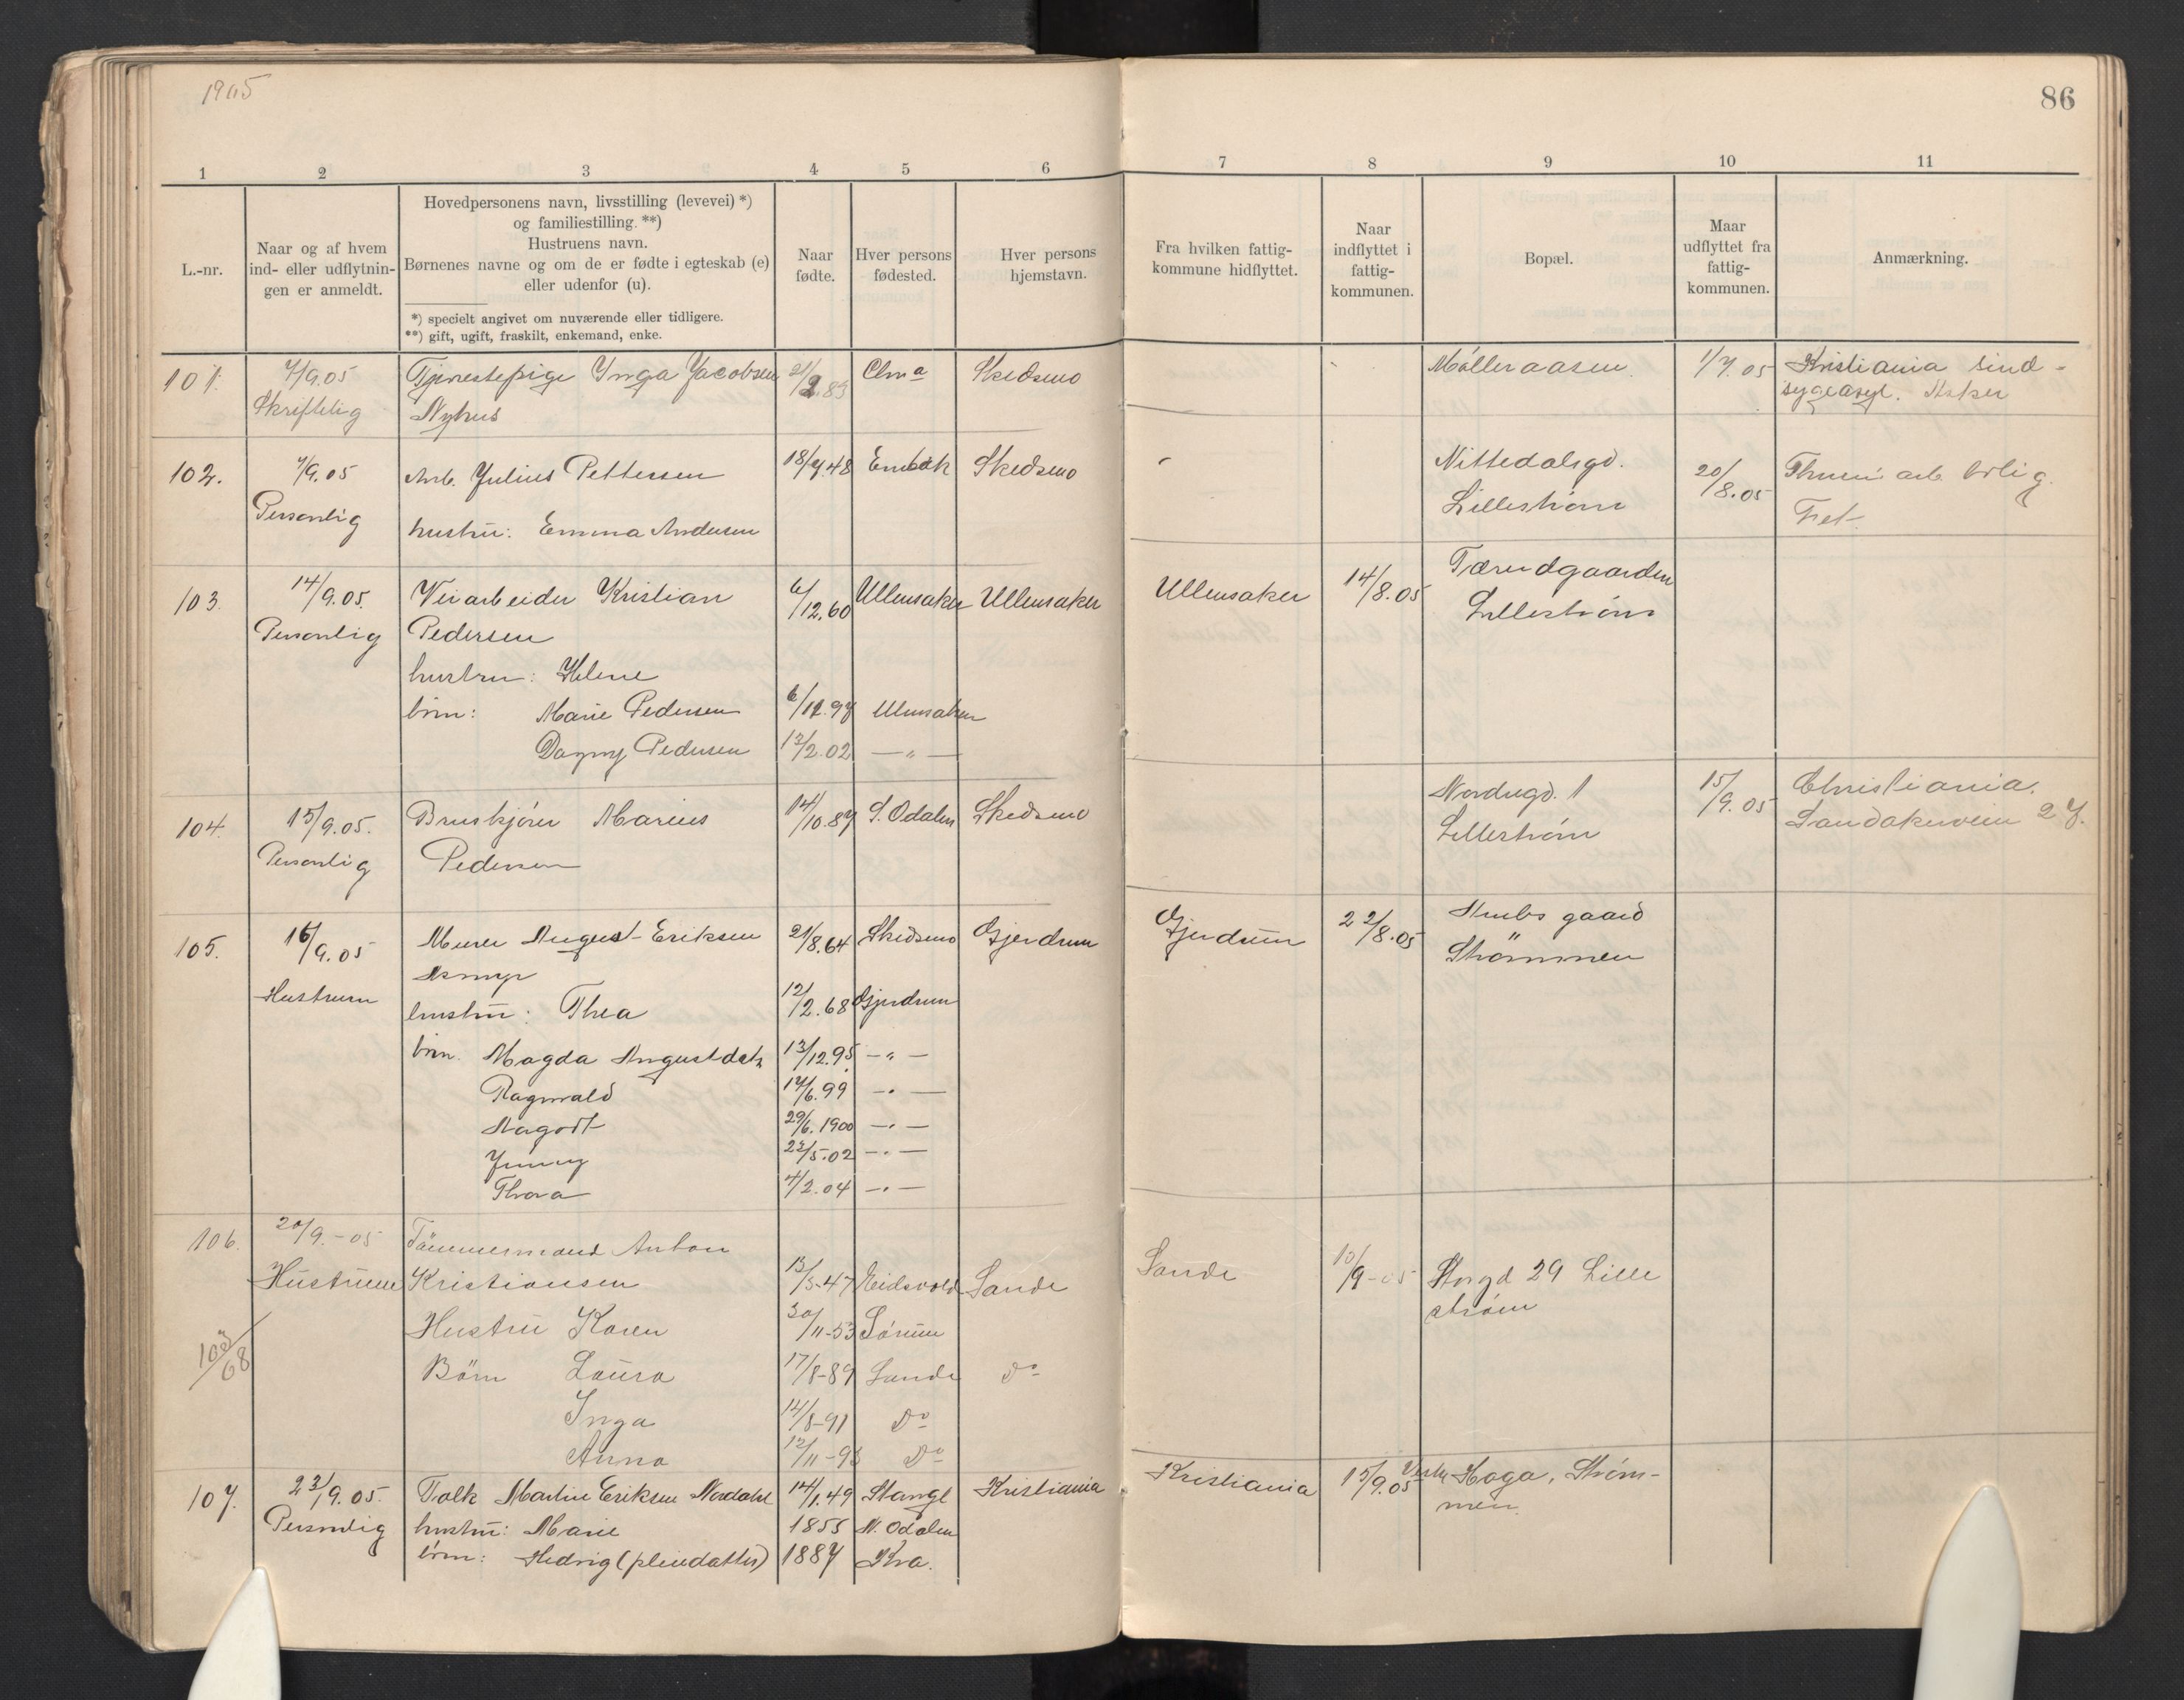 1905
86
1 2 3 4 5 6 7 8 9 10 11
L.-nr.
Naar og af hvem
ind- eller udflytnin-
gen er anmeldt.
Hovedpersonens navn, livsstilling (levevei) *)
og familiestilling. **)
Hustruens navn.
Børnenes navne og om de er fødte i egteskab (e)
eller udenfor (u).
*) specielt angivet om nuværende eller tidligere.
**) gift, ugift, fraskilt, enkemand, enke.
Naar
fødte.
Hver persons
fødested.
Hver persons
hjemstavn.
Fra hvilken fattig-
kommune hidflyttet.
Naar
indflyttet i
fattig-
kommunen.
Bopæl.
Maar
udflyttet fra
fattig-
kommunen.
Anmærkning.
101. 7/9.05 Tjenestepige Inga Jacobsen 21/2.83 Chra Skedsmo Mølleraasen. 1/7.05 Kristiania sind-
Skriftelig Nyhus sygeasyl. Aker
102. 7/9.05 Arb. Julius Pettersen 18/7.48 Enebak Skedsmo Nittedalsgd. 20/8.05 arb. bolig.
Personlig hustru: Emma Andersen Lillestrøm Fet.
103. 14/9.05. Veiarbeider Kristian 6/12.60 Ullensaker Ullensaker Ullensaker 14/8.05 Tærudgaarden
Personlig Pedersen Lillestrøm
hustru: Helene
børn: Marie Pedersen 6/12.97 Ullensaker
Dagny Pedersen 13/2.02 — " —
104. 15/9.05. Bruskjører Marius 14/10.87 S. Odalen Skedsmo Nordregd. 1 15/9.05 Christiania.
Personlig Pedersen Lillestrøm Sandakerveien 27.
105. 16/9.05 Murer August Eriksen 21/8.64 Skedsmo Gjerdrum Gjerdrum 22/8.05 Strubs gaard
Asmyr Strømmen
Hustruen hustru: Thea 12/2.68 Gjerdrum
børn. Magda Augustdatr 13/12.95 — " —
Ragnvald 17/6.99 — " —
Aagodt 29/6.1900 — " —
Jenny 23/5.02 — " —
Thora 4/2.04 — " —
106. 20/9.-05 Tømmermand Anton
Hustruen Kristiansen 13/5-47 Eidsvold Sande Sande 10/9-05 Storgd 29 Lille
strøm
Hustru Karen 30/11-53 Sørum
103/68
Børn Laura 17/8-89 Sande Do
Inga 14/8-91 Do
Anna 12/11-93 Do
107. 23/9.05. Tolk Martin Eriksen Nordahl 14/1.49 Stange Kristiania Kristiania 15/9.05 Vestre Haga, Strøm-
men.
Personlig hustru: Marie 1855 N. Odalen
børn: Hedvig (pleiedatter) 1887 Kra.